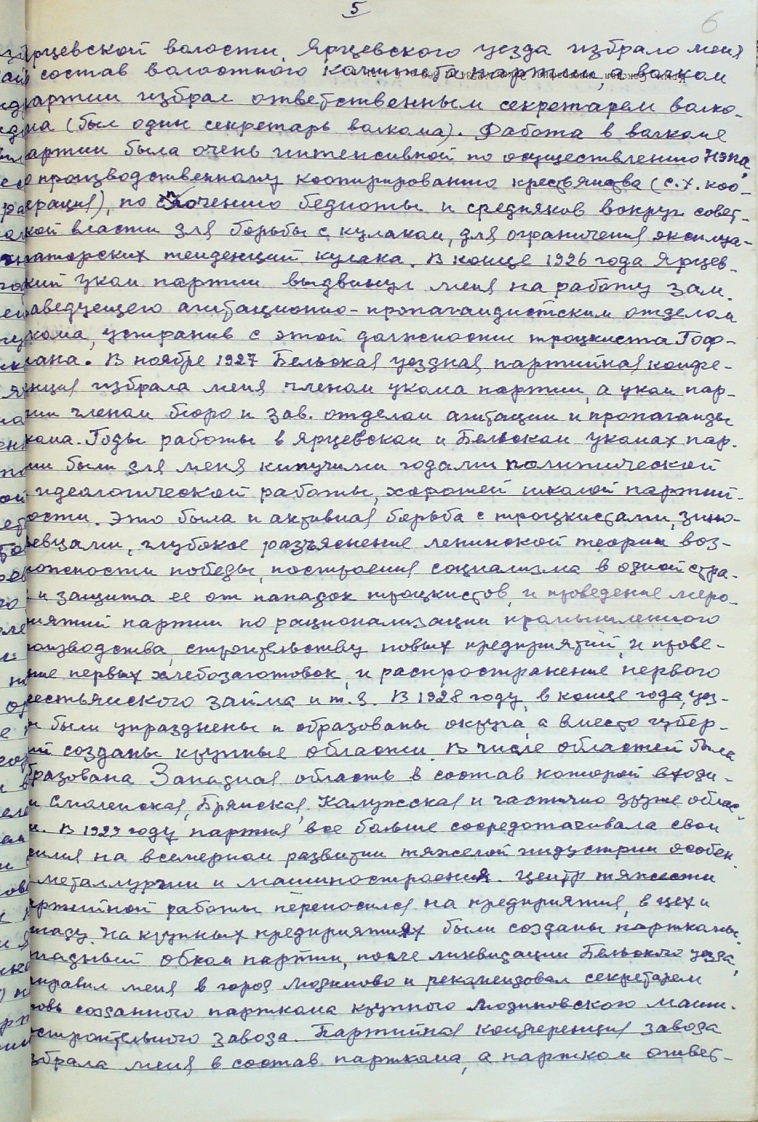 5
6
рцевской волости, Ярцевского уезда избрало меня
состав волостного комитета партии, а волком
партии избрал ответственным секретарем волко-
ма (был один секретарь волкома). Работа в волкоме
артии была очень интенсивной по осуществлению нэпа,
о производственному кооперированию крестьянства (с.х. коо-
ерация), по сплочению бедноты и средняков вокруг совет-
кой власти для борьбы с кулаком, для ограничения эксплуа-
таторских тенденций кулака. В конце 1926 года Ярцев-
кий уком партии выдвинул меня на работу зам.
аведующего агитационно-пропагандистским отделом
кома, устранив с этой должности троцкиста Гоф-
мана. В ноябре 1927 Бельская уездная партийная конфе-
нция избрала меня членом укома партии, а уком пар-
ии членом бюро и зав. отделом агитации и пропаганды
кома. Годы работы в Ярцевском и Бельском укомах пар-
ии были для меня кипучими годами политической
идеологической работы, хорошей школой партий-
ости. Это была и активная борьба с троцкистами, зино-
вьевцами, глубокое разъяснение ленинской теории воз-
можности победы, построения социализма в одной стра-
и защита ее от нападок троцкистов, и проведение меро-
риятий партии по рационализации промышленного
роизводства, строительству новых предприятий, и прове-
ние первых хлебозаготовок, и распространение первого
рестьянского займа и т.д. В 1928 году, в конце года, уез-
были упразднены и образованы округа, а вместо губер-
ий созданы крупные области. В числе областей была
бразована Западная область в состав которой входи-
и Смоленская, Брянская, Калужская и частично другие облас-
и. В 1929 году партия все больше сосредотачивала свои
силия на всемерном развитии тяжелой индустрии особен-
металлургии и машиностроения. Центр тяжести
артийной работы переносился на предприятия, в цех и
На крупных предприятиях были созданы парткомы.
ападный обком партии, после ликвидации Бельского уезда,
направил меня в город Людиново и рекомендовал секретарем
новь созданного парткома крупного Людиновского маши-
остроительного завода. Партийная конференция завода
збрала меня в состав парткома, а партком ответ-